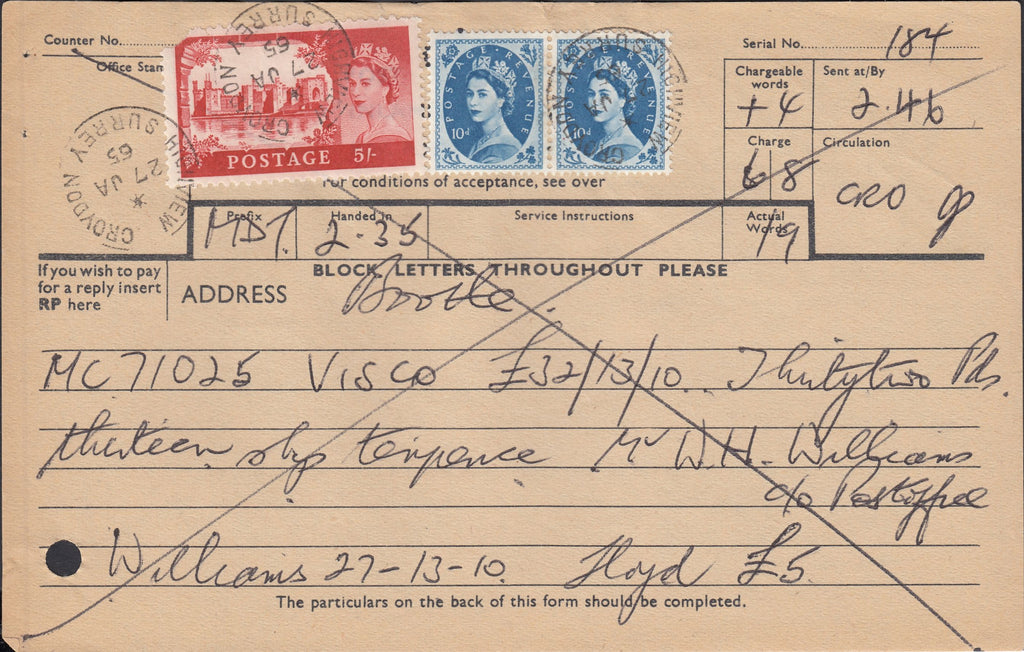 Counter No.
Serial No. 184
Office Stam
Chargeable words
+4
Sent at/By
2.46
POSTAGE 5/-
POSTAGE REVENUE
10d
POSTAGE REVENUE
10d
HIGH VIEW
27 JA
65
CROYDON SURREY
Charge
6/8
Circulation
CRO
For conditions of acceptance, see over
Prefix
MDT.
Handed in
2-35
Service Instructions
Actual Words
19
If you wish to pay
for a reply insert
RP here
BLOCK LETTERS THROUGHOUT PLEASE
ADDRESS
Bootle.
MC71025 VISCO £32/13/10. Thirtytwo Pds.
thirteen shgs tenpence Mr W.H. Williams
c/o Postoffice
Williams 27-13-10. Lloyd £5.
The particulars on the back of this form should be completed.